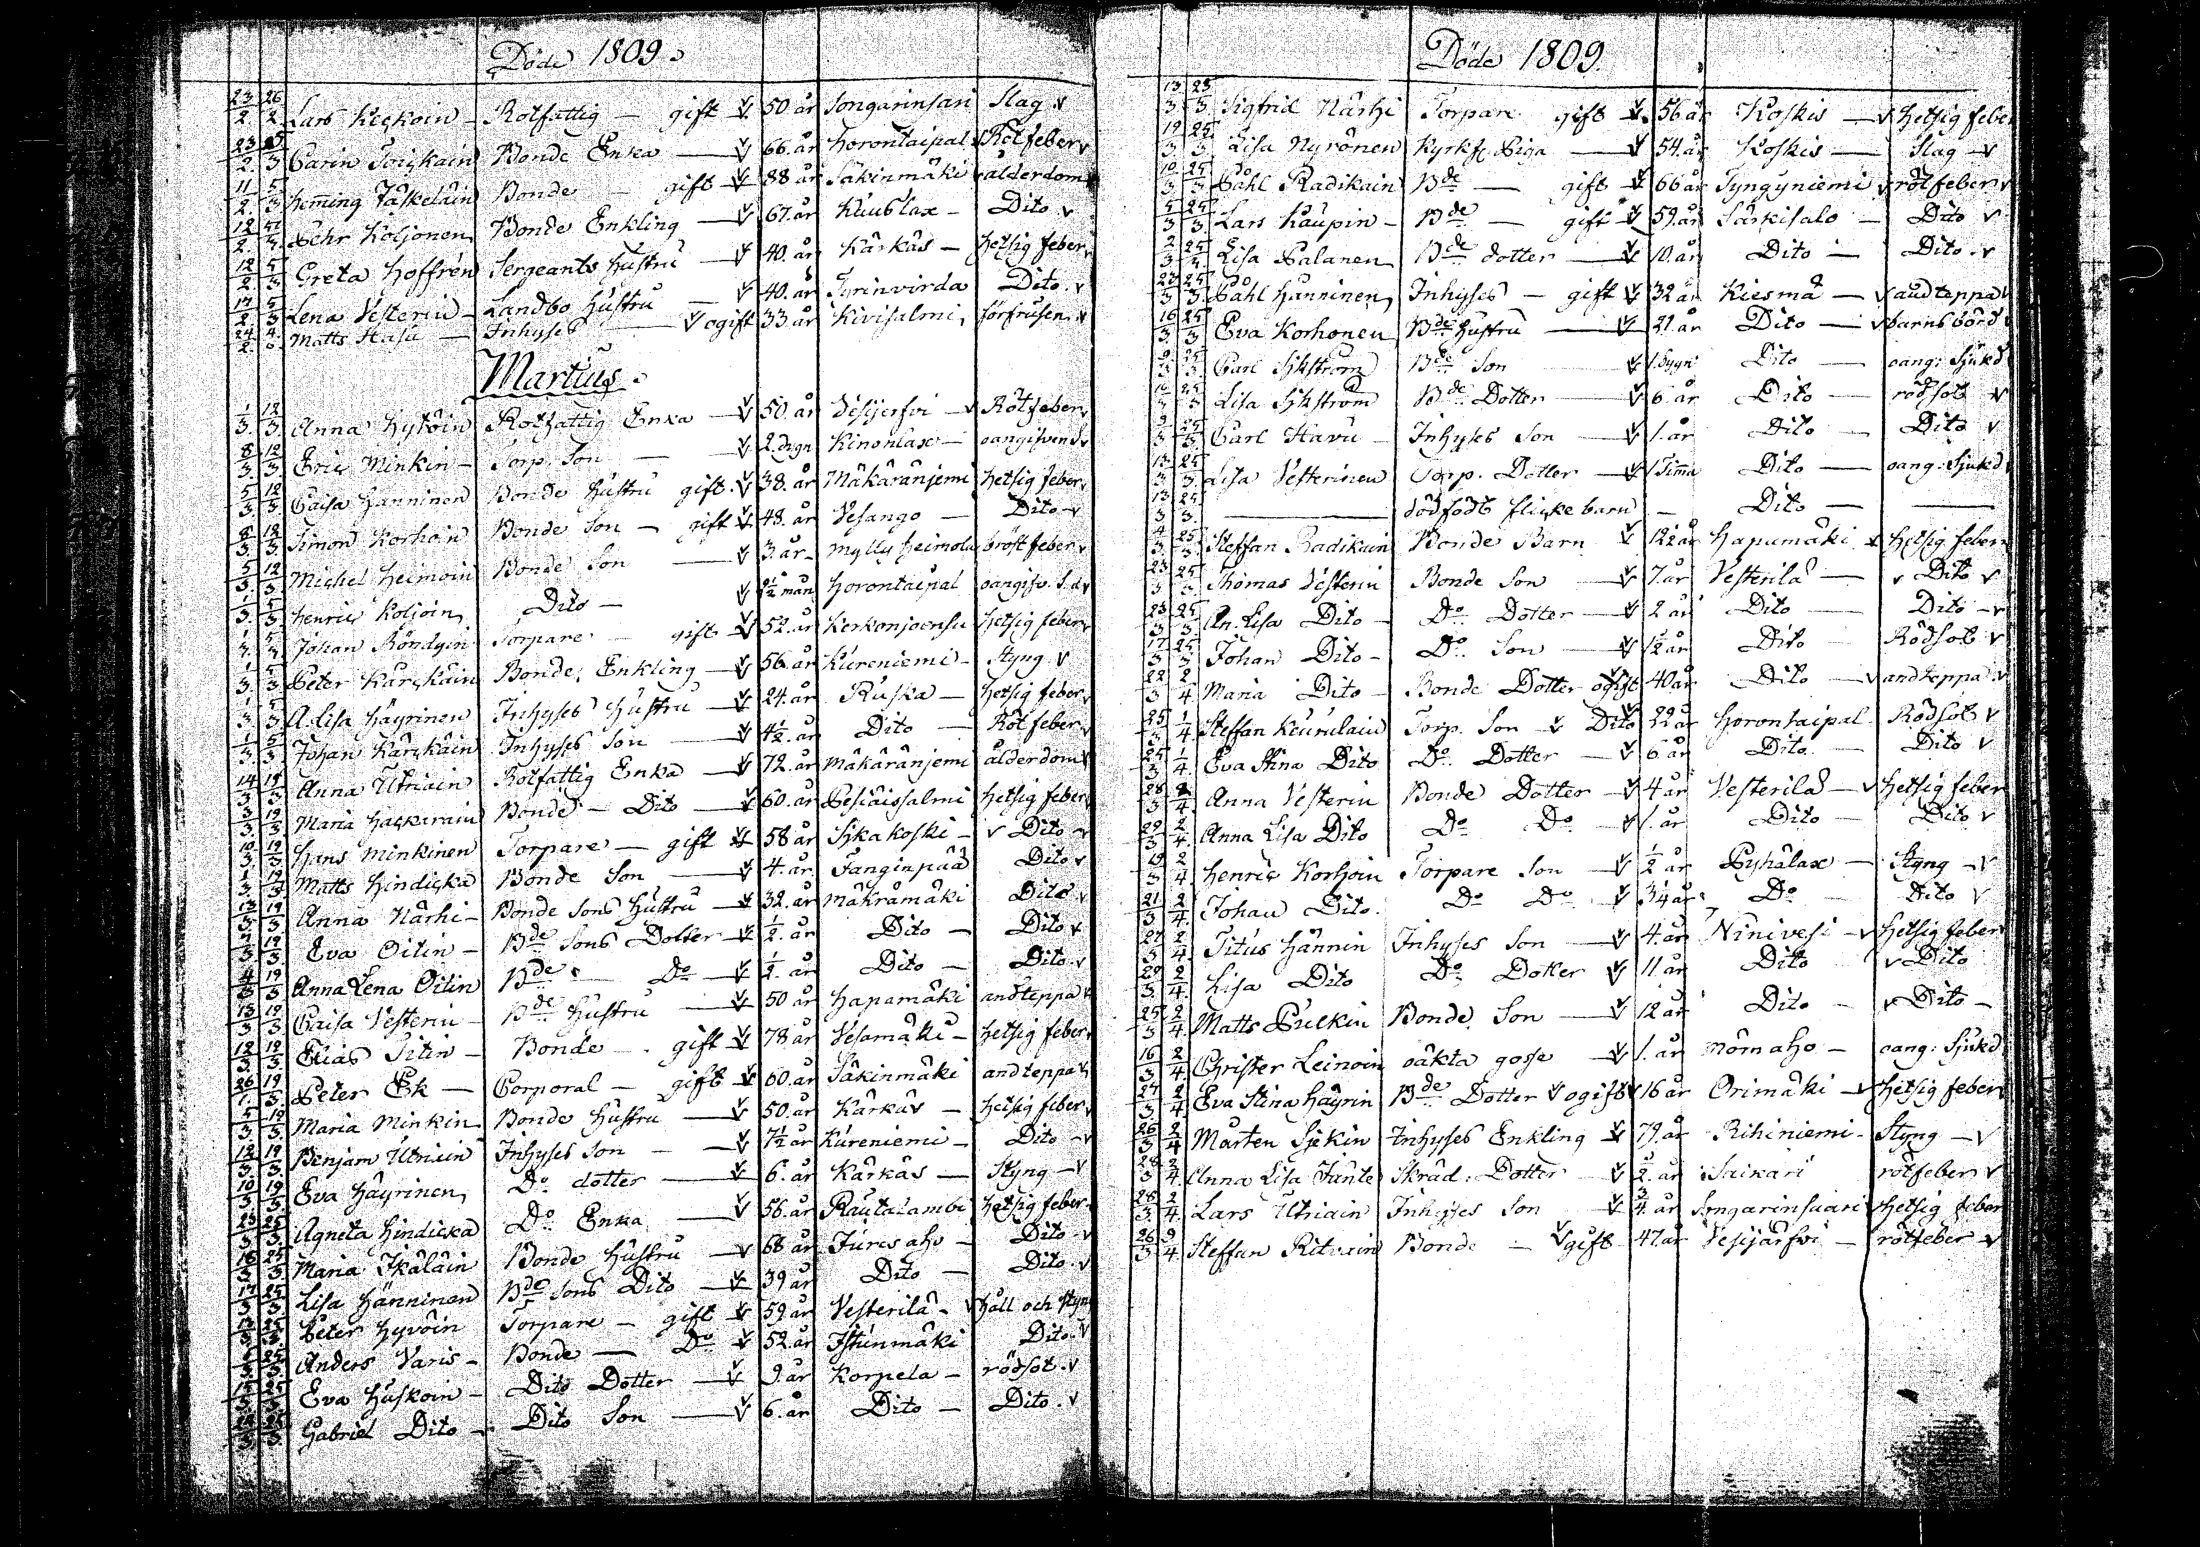 Döde 1809.
23/2 26/2 Lars Kickoin - Rotfattig - gift 50 år Songarinsari Slag
23/2 5/3 Carin Toiskain Bonde Enka - 66. år Horontaipal Rötfeber
11/2 5/3 Heming Jäskeläin Bonde - gift 88 år Säkinmäki ålderdom
12/2 5/3 Pehr Koljonen Bonde Enkling - 67. år Kuuslax - Dito
12/2 5/3 Greta Hoffrén Sergeants Hustru - 40. år Kärkäs - Hetsig feber
17/2 5/3 Lena Vesterin - Landbo Hustru - 40. år Tyrinvirda Dito
24/2 Matts Hasu - Inhyses - ogift 33 år Kivisalmi förfrusen
Martius.
1/3 12/3 Anna Hytöin Rotfattig Enka - 50. år Vesijerfvi - Rötfeber
8/3 12/3 Eric Minkin - Torp. Son - 2. dygn Kinonlax - oangifven S.
5/3 12/3 Caisa Hänninen Bonde Hustru gift. 38. år Mäkäränjemi Hetsig feber
8/3 12/3 Simon Korhoin Bonde Son - gift 48. år Vesango - Dito
5/3 12/3 Michel Heimoin Bonde Son - 3 år - Mylly heimola bröstfeber
1/3 5/3 Henric Koljoin Dito - 2½ mån Horontaipal oangifv. S.d
1/3 5/3 Johan Röndyin Torpare - gift 52. år Kerkonjoensu Hetsig feber
1/3 5/3 Peter Kärckäin Bonde Enkling - 56. år Kureniemi - Styng
1/3 5/3 A. Lisa Häyrinen Inhyses Hustru - 24. år Ruska - Hetsig feber
1/3 5/3 Johan Kärckäin Inhyses Son - 4½. år Dito - Rötfeber
14/3 19/3 Anna Utriain Rotfattig Enka - 72. år Mäkäränjemi ålderdom
3/3 19/3 Maria Hackarain Bonde - Dito - 60. år Pesiäissalmi Hetsig feber
10/3 19/3 Hans Minkinen Torpare - gift 58 år Sikakoski - Dito
1/3 19/3 Matts Hindicka Bonde Son - 4. år Tanginpää Dito
13/3 19/3 Anna Närhi - Bonde Sons Hustru - 32. år Mäkrämäki Dito
19/3 Eva Oitin - Bde Sons Dotter - ½. år Dito - Dito
4/3 19/3 Anna Lena Oitin Bde Do - ½. år Dito - Dito
13/3 19/3 Caisa Vesterin - Bde Hustru - 50 år Hapamäki andteppa
12/3 19/3 Elias Sitin - Bonde - gift 78 år Vesamäki - Hetsig feber
26/1 19/3 Peter Ek - Corporal - gift 60. år Säkinmäki andteppa
5/3 19/3 Maria Minkin Bonde Hustru - 50. år Kärkäs - Hetsig feber
12/3 19/3 Benjam Utriain Inhyses Son - 7½ år Kureniemi - Dito
10/3 19/3 Eva Häyrinen Do dotter - 6. år Kärkäs - Styng
23/3 25/3 Agneta Hindicka Do Enka - 56. år Rautalambi Hetsig feber
16/3 25/3 Maria Ikäläin Bonde Hustru - 68 år Juresaho - Dito
17/3 25/3 Lisa Hänninen Bde Sons Dito - 39 år Dito - Dito
13/3 25/3 Peter Hyvöin Torpare - gift 59 år Vesterilä - Håll och Styng
25/3 Anders Varis - Bonde - Do 52. år Istunmäki Dito
15/3 25/3 Eva Huskoin - Dito Dotter - 9. år Korpela - rödsot
25/3 Gabriel Dito - Dito Son - 6. år Dito - Dito
Döde 1809.
13/3 25/3 Sigfrid Närhi Torpare gift 56 år Koskis - Hetsig feber
19/3 25/3 Lisa Nyrönen Kyrkf. Piga - 54. år Koskis - Slag
10/3 25/3 Påhl Radikain Bde - gift 66 år Tyngyniemi rötfeber
5/3 25/3 Lars Kaupin - Bde - gift 59. år Särkisalo - Dito
2/3 25/3 Lisa Palanen Bde dotter - 10. år Dito - Dito
23/3 25/3 Påhl Hänninen Inhyses - gift 32 år Kiesmä - andteppa
16/3 25/3 Eva Korhonen Bde Hustru - 21. år Dito - barnsbörd
9/3 25/3 Carl Sikström Bde Son 1. dygn Dito - oang: Sjukd
16/3 25/3 Lisa Sikström Bde Dotter - 6. år Dito - rödsot
9/3 25/3 Carl Havu - Inhyses Son - 1. år Dito - Dito
13/3 25/3 Lisa Vesterinen Torp. Dotter - 1 Tima Dito - oang: Sjukd
13/3 25/3 - dödfödt flickebarn - Dito -
4/3 25/3 Steffan Radikain Bonde Barn 12½ år Hapumäki Hetsig feber
23/3 25/3 Thomas Vesterin Bonde Son - 7. år Vesterilä - Dito
23/3 25/3 An. Lisa Dito - Do Dotter - 2 år Dito - Dito
17/3 25/3 Johan Dito - Do Son - ½ år Dito Rödsot
22/3 2/4 Maria Dito - Bonde Dotter ogift 40 år Dito - andteppa
25/3 1/4 Steffan Keurulain Torp. Son Dito 22 år Horontaipal Rödsot
25/3 1/4 Eva Stina Dito Do Dotter - 6 år Dito - Dito
28/3 2/4 Anna Vesterin Bonde Dotter - 4 år Vesterilä - Hetsig feber
29/3 2/4 Anna Lisa Dito Do Do - 1. år Dito - Dito
19/3 2/4 Henric Korhoin Torpare Son - ½ år Pyhälax - Styng
21/3 2/4 Johan Dito. Do Do - 3¼ år Do - Dito
27/3 2/4 Titus Hännin Inhyses Son - 4. år Ninivesi - Hetsig feber
29/3 2/4 Lisa Dito Do Dotter 11 år Dito Dito
25/3 2/4 Matts Pulkin Bonde Son - 12 år Dito - Dito -
16/3 2/4 Christer Leinoin oäkta gosse - 1. år Mömaho - oang: Sjukd
27/3 2/4 Eva Stina Häyrin Bde Dotter ogift 16 år Orimäki - Hetsig feber
26/3 2/4 Mårten Sickin Inhyses Enkling 79. år Rihiniemi - Styng -
28/3 2/4 Anna Lisa Jante Skräd: Dotter - ½. år Saikari rötfeber
28/3 2/4 Lars Utriain Inhyses Son - ¾ år Songarinsaari Hetsig feber
26/3 9/4 Steffan Ritvain Bonde - gift 47. år Vesijärfvi - rötfeber